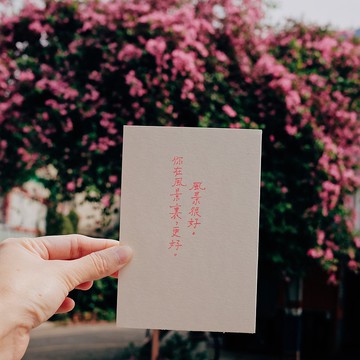 風景很好。
你在風景裏，更好。